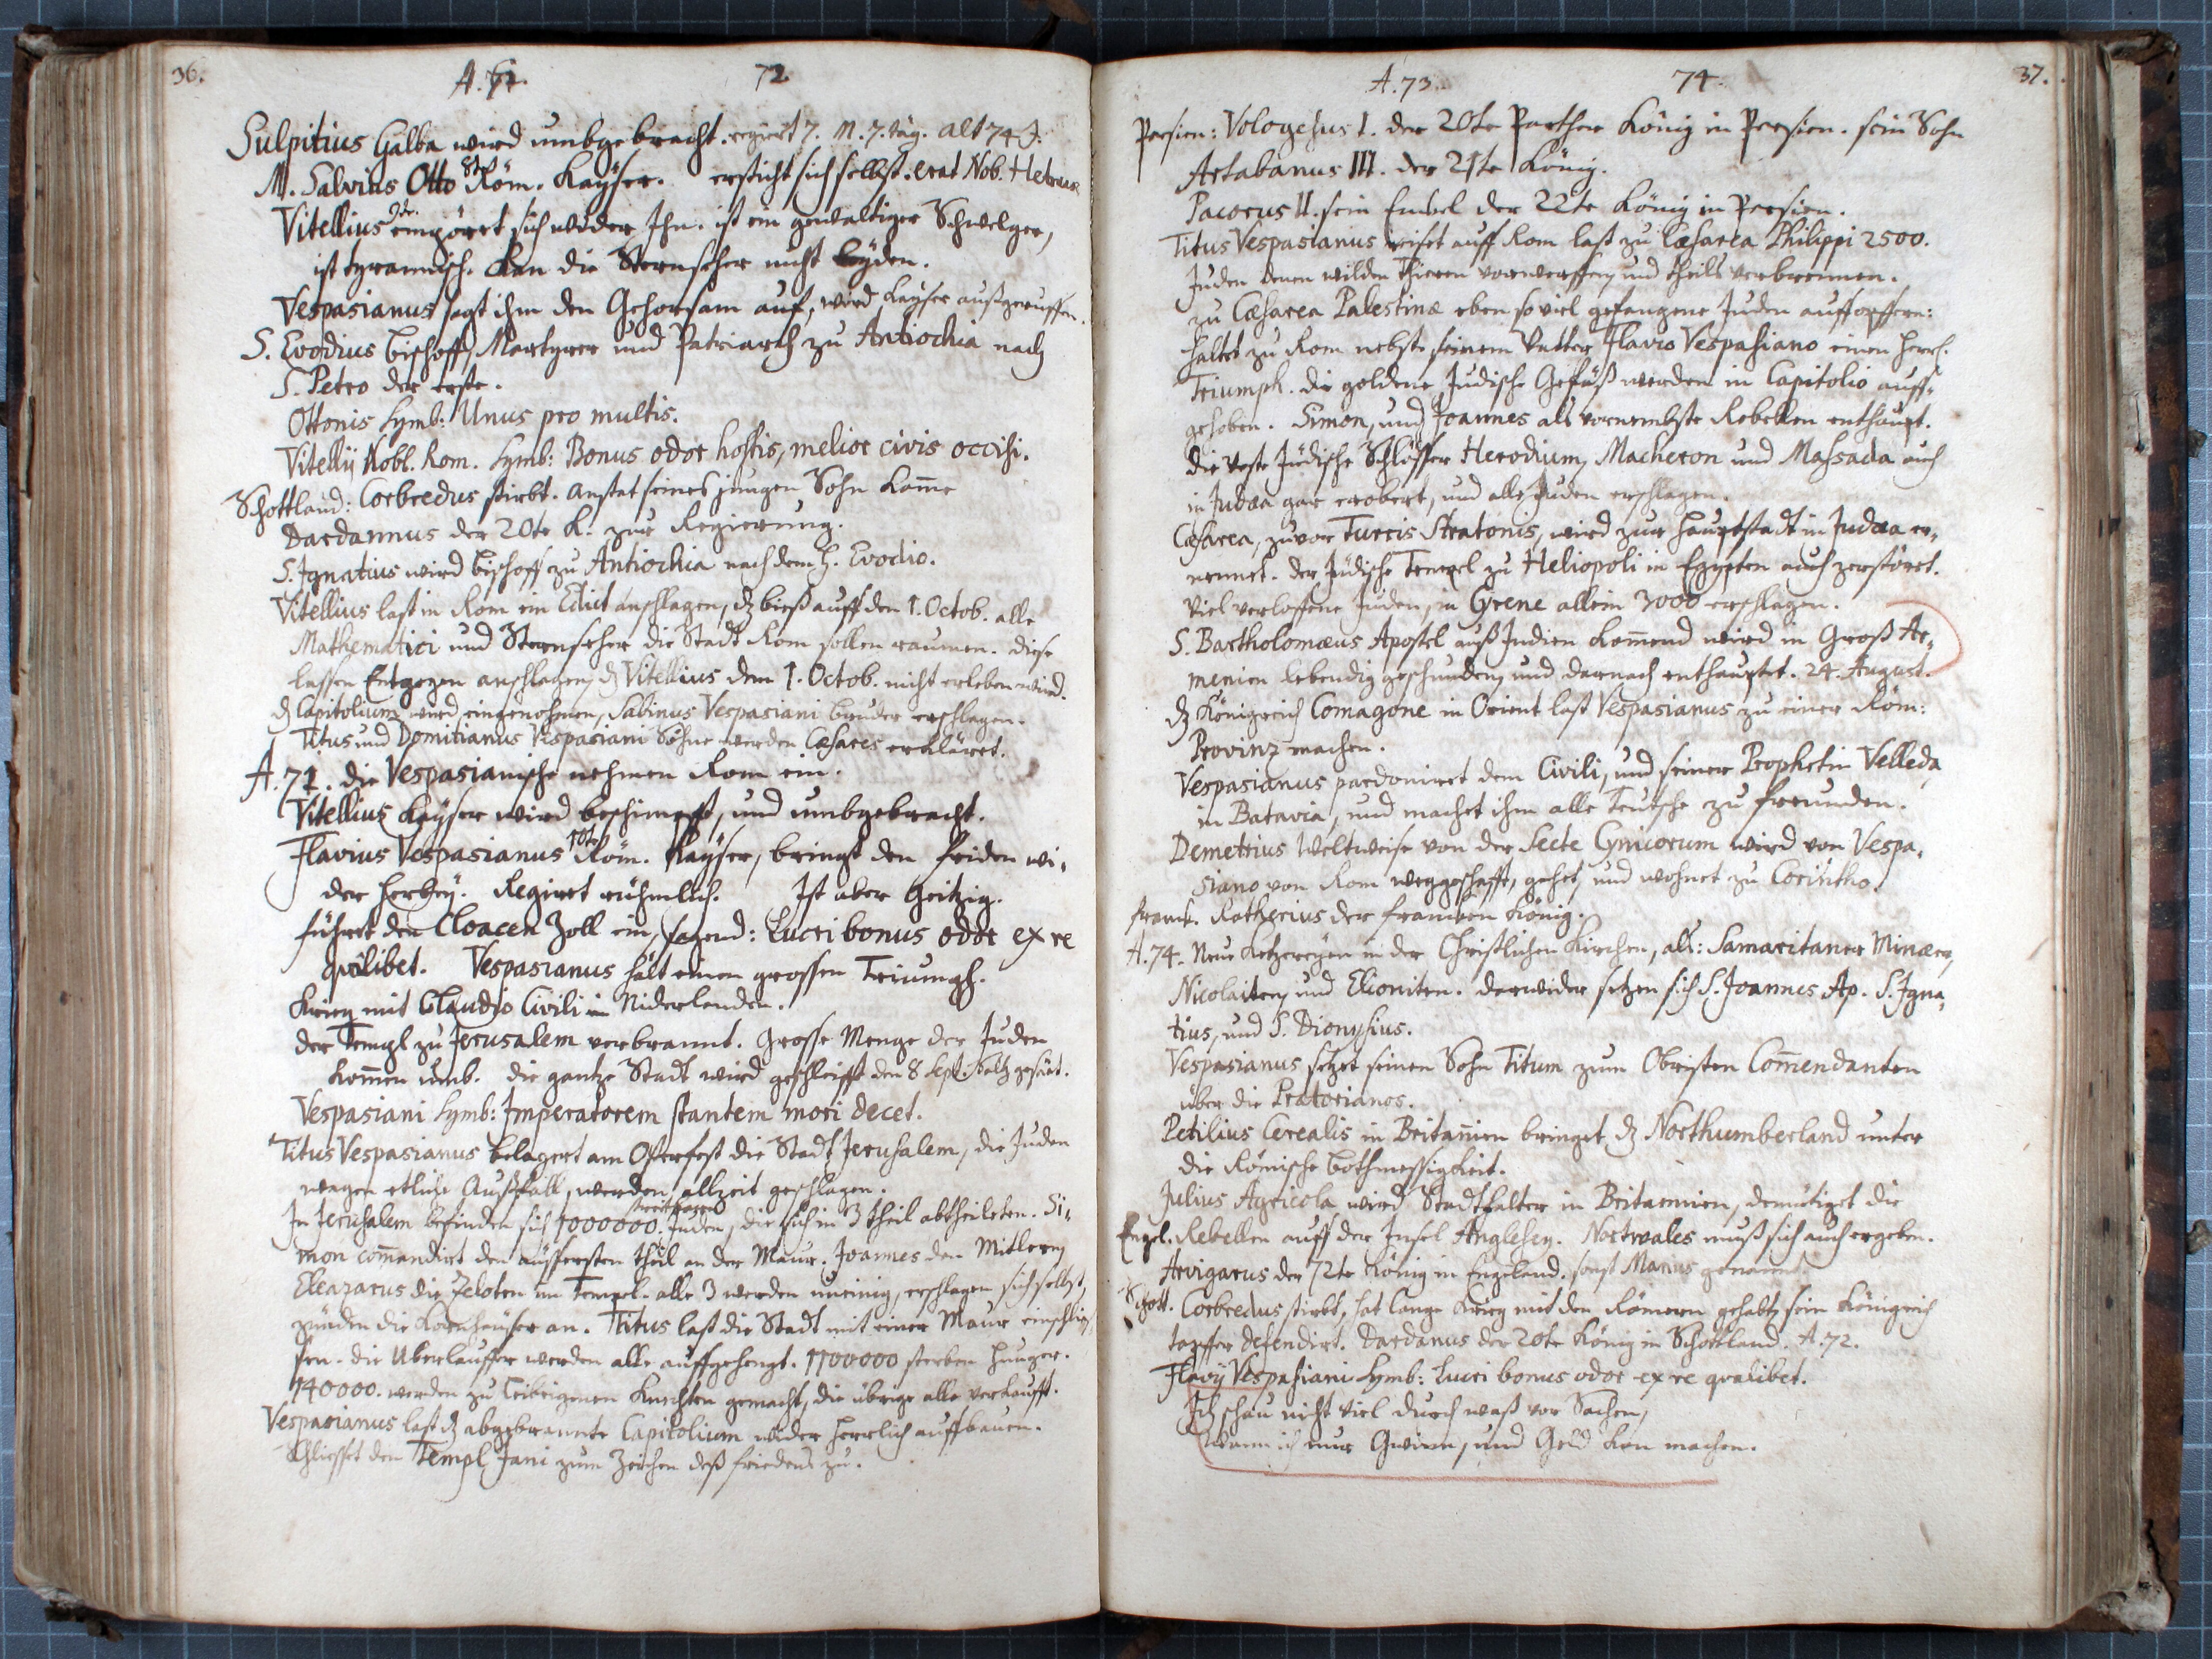 36.
A. 71. 72
Sulpitius Galba wird umbgebracht. regiert 7. M. 7. täg. alt 74 J.
M. Salvius Otto 8te Röm. Kayser. ersticht sich selbst. erat Nob. Hetrusc
Vitellius 9te empöret sich wider Ihn. ist ein gewaltiger Schwelger,
ist tyrannisch. Kan die Sternseher nicht leyden.
Vespasianus sagt ihm den Gehorsam auf, wird Kayser außgeruffen.
S. Evodius Bischoff, Martyrer und Patriarch zu Antiochia nach
S. Petro der erste.
Ottonis Symb: Unus pro multis.
Vitellij Nobl. Rom. Symb: Bonus odor hostis, melior civis occisi.
Schottland: Corbredus stirbt. anstat seines jungen Sohn Kome
Dardannus der 20te K. zur Regierung.
S. Ignatius wird Bischoff zu Antiochia nach dem H. Evodio.
Vitellius last in Rom ein Edict anschlagen, dz biß auff den 1. Octob. alle
Mathematici und Sternseher die Stadt Rom sollen raumen. diese
lassen Entgegen anschlagen, dz Vitellius den 1. Octob. nicht erleben wird.
dz Capitolium wird eingenohmen, Sabinus Vespasiani bruder erschlagen.
Titus und Domitianus Vespasiani Söhne werden Cæsares erkläret.
A. 71. die Vespasianische nehmen Rom ein.
Vitellius Kayser wird beschimpfft, und umbgebracht.
Flavius Vespasianus 10te Röm. Kayser, bringt den friden wi-
der herbey. Regiret rühmlich. Ist aber Geitzig.
führet den Cloacen Zoll ein, sagend: Lucri bonus odor ex re
qualibet. Vespasianus hält einen grossen Triumph.
Krieg mit Claudio Civili in Niderlanden.
der Templ zu Jerusalem verbrannt. Grosse Menge der Juden
kommen umb. die gantze Stadt wird geschleifft den 8 Sept. Saltz gesäet.
Vespasiani Symb: Imperatorem stantem mori decet.
Titus Vespasianus belagert am Osterfest die Stadt Jerusalem, die Juden
wagen etliche Außfäll, werden allzeit geschlagen.
In Jerusalem befinden sich 1000000. Juden, die sich in 3 theil abtheileten. Si-
mon commandirt den äussersten theil an der Maur. Joannes den Mitlern,
Eleazarus die Zeloten im Tempel. alle 3 werden uneinig, erschlagen sich selbst,
zünden die Kornhäuser an. Titus last die Stadt mit einer Maur einschlies-
sen. die Uberlauffer werden alle auffgehengt. 1100000 sterben Hunger.
140000. werden zu Leibeigenen Knechten gemacht, die übrige alle verkaufft.
Vespasianus last dz abgebrannte Capitolium wider herrlich auffbauen.
Schliesset den Templ Jani zum Zeichen deß friedens zu.
37.
A. 73. 74.
Persien: Vologesus I. der 20te Parther König in Persien. sein Sohn
Artabanus III. der 21te König.
Pacorus II. sein Enckel der 22te König in Persien.
Titus Vespasianus reiset auff Rom last zu Cæsarea Philippi 2500.
Juden denen wilden Thieren vorwerffen, und theils verbrennen.
zu Cæsarea Palestinæ eben so viel gefangene Juden auffopffern:
haltet zu Rom nebst seinem Vatter Flavio Vespasiano einen Herrl.
Triumph. die goldene Judische Gefäß werden in Capitolio auff-
gehoben. Simon, und Joannes als vornembste Rebellen enthaupt.
die veste Jüdische Schlösser Herodium, Macheron und Massada auch
in Judæa gar erobert, und alle Juden erschlagen.
Cæsarea, zuvor Turris Stratonis, wird zur Hauptstadt in Judæa er-
nennet. der Jüdische Tempel zu Heliopoli in Egypten auch zerstöret.
Viel verloffene Juden, in Cyrene allein 3000 erschlagen.
S. Bartholomæus Apostel auß Indien kommend wird in Groß Ar-
menien lebendig geschunden, und darnach enthauptet. 24. August.
dz Königreich Comagone in Orient last Vespasianus zu einer Röm:
Provinz machen.
Vespasianus pardoniret dem Civili, und seiner Prophetin Velleda
in Batavia, und machet ihm alle Teutsche zu freunden.
Demetrius Weltweise von der Secte Cynicorum wird von Vespa-
siano von Rom weggeschafft, gehet, und wohnet zu Corintho.
Franck. Ratherius der Francken König.
A. 74. Neue Ketzereyen in der Christlichen Kirchen, als: Samaritaner Minæer,
Nicolaiten, und Ebioniten. darwider setzen sich S. Joannes Ap. S. Igna-
tius, und S. Dionysius.
Vespasianus setzet seinen Sohn Titum zum Obristen Commendanten
über die Prætorianos.
Petilius Cerealis in Britannien bringet dz Northumberland unter
die Römische Bothmessigkeit.
Julius Agricola wird Stadthalter in Britannien, demütiget die
Engel. Rebellen auff der Insel Anglesey. Nortwales muß sich auch ergeben.
Arvigarus der 72te König in Engeland. sonst Marius genannt.
Schott. Corbredus stirbt, hat lange Krieg mit den Römern gehabt, sein Königreich
tapffer defendirt. Dardanus der 20te König in Schottland. A. 72.
Flavij Vespasiani Symb: Lucri bonus odor ex re qualibet.
Ich schau nicht viel durch waß vor Sachen,
Wann ich nur Gwinn, und Geld kan machen.